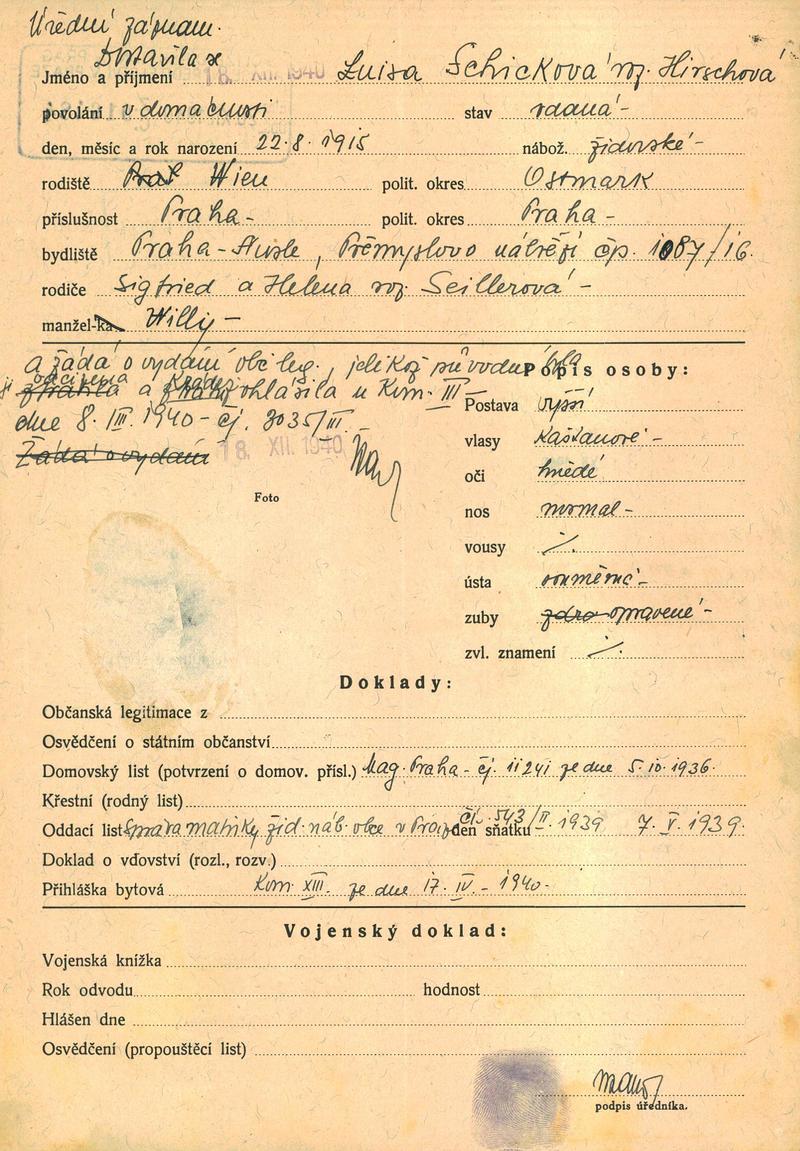 Úřední záznam.
Dostavila se
Jméno a příjmení 18. XII. 1940 Luisa Schicková roz. Hirschová
povolání v domácnosti stav vdaná -
den, měsíc a rok narození 22. 8. 1915 nábož. židovské -
rodiště Prah Wien polit. okres Ostmark
příslušnost Praha - polit. okres Praha -
bydliště Praha - Nusle, Přemyslovo nábřeží čp. 1087/16.
rodiče Sigfried a Helena roz. Seillerová -
manžel-ka Willy -
a žádá o vydání obč. leg., jelikož původní byla
jí ztratila odcizena a krádež ohlásila u Kom. III -
dne 8. III. 1940 - čj. 3035/III. -
Žádá o vydání 18. XII. 1940
Foto
Popis osoby:
Postava vyšší
vlasy kaštanové -
oči hnědé
nos normal -
vousy /.
ústa souměrné -
zuby zdra opravené -
zvl. znamení /.
Doklady:
Občanská legitimace z
Osvědčení o státním občanství
Domovský list (potvrzení o domov. přísl.) Mag. Praha - čj. 11241 ze dne 5. 10. 1936.
Křestní (rodný list)
Oddací list Správa matriky žid. náb. obce v Praze den sňatku čj. 543/II. 1939 7. V. 1939.
Doklad o vdovství (rozl., rozv.)
Přihláška bytová Kom. XIII. ze dne 17. IV. - 1940 -
Vojenský doklad:
Vojenská knížka
Rok odvodu hodnost
Hlášen dne
Osvědčení (propouštěcí list)
podpis úředníka.